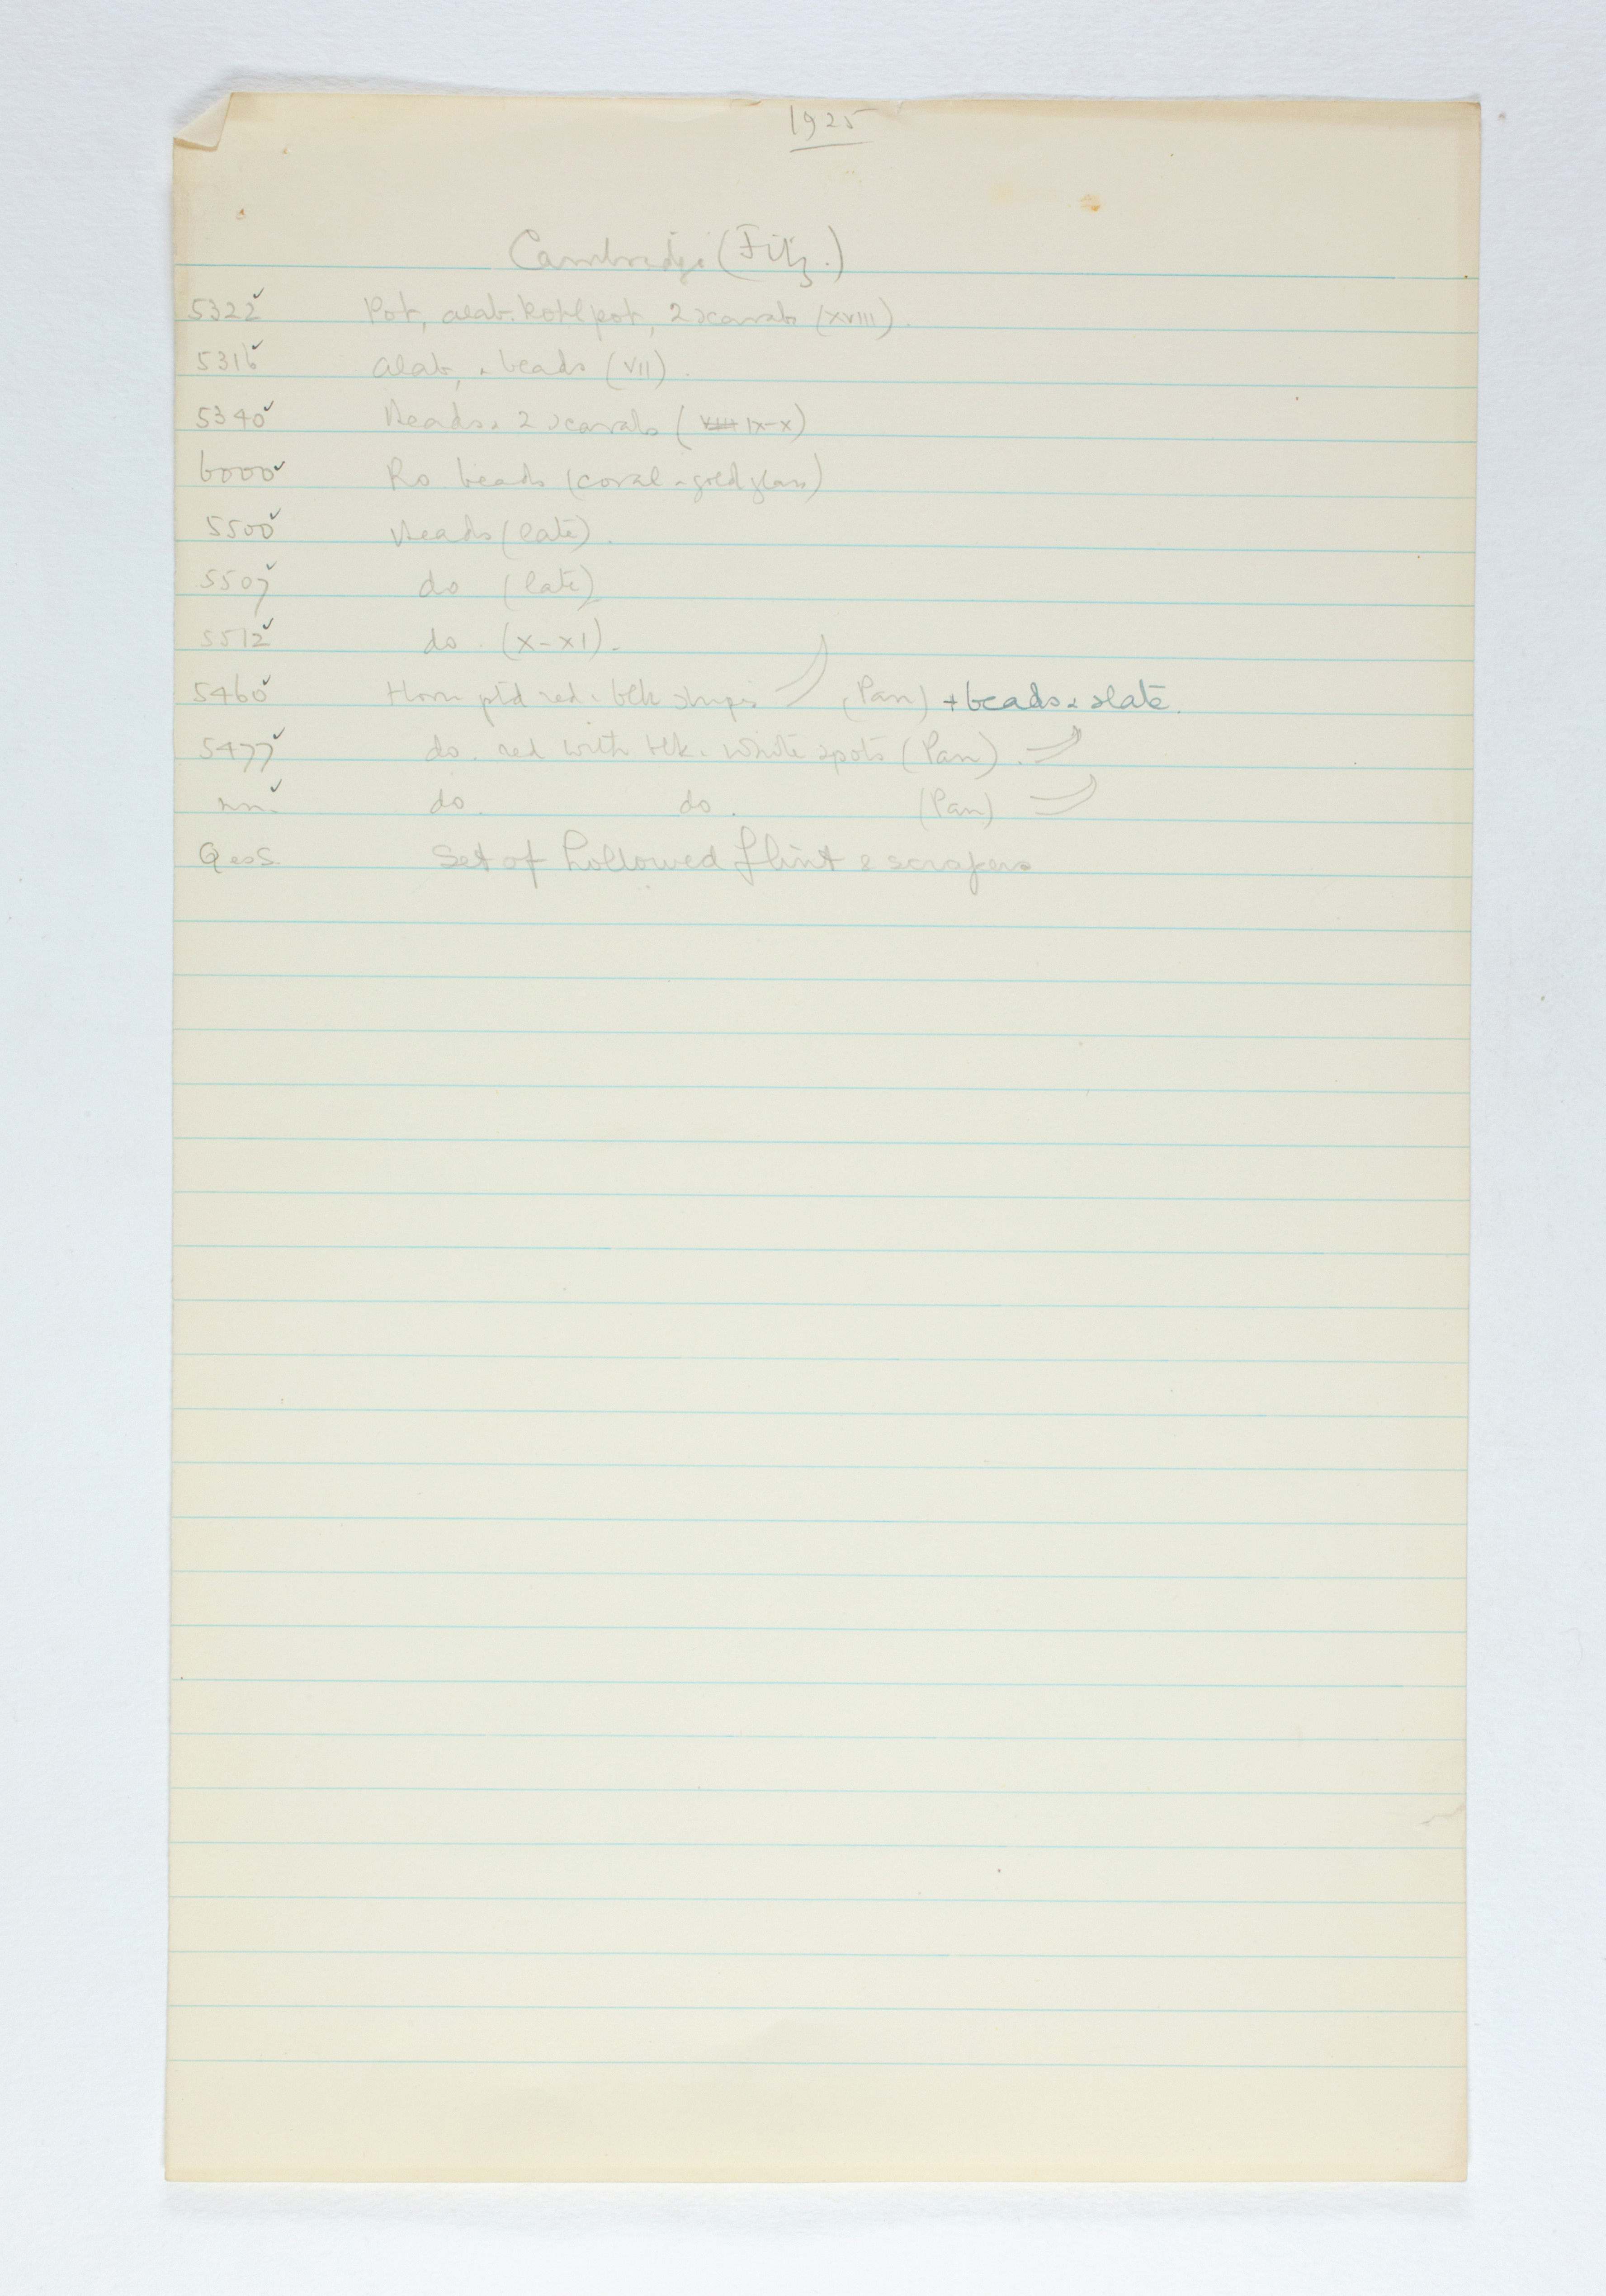 1925
Cambridge (Fitz.)
5322 ✓ Pot, alab. kohl pot, 2 scarabs (XVIII).
5316 ✓ Alab, & beads (VII).
5340 ✓ Beads & 2 scarabs (VIII IX-X)
6000 ✓ Ro. beads (coral & gold glass)
5500 ✓ Beads (late).
5507 ✓ do (late)
5512 ✓ do. (X-XI).
5460 ✓ Horn ptd red & blk stripes (Pan) + beads & slate.
5477 ✓ do. red with blk. & white spots (Pan).
nn. ✓ do. do. (Pan)
Q es S. Set of hollowed flint & scrapers